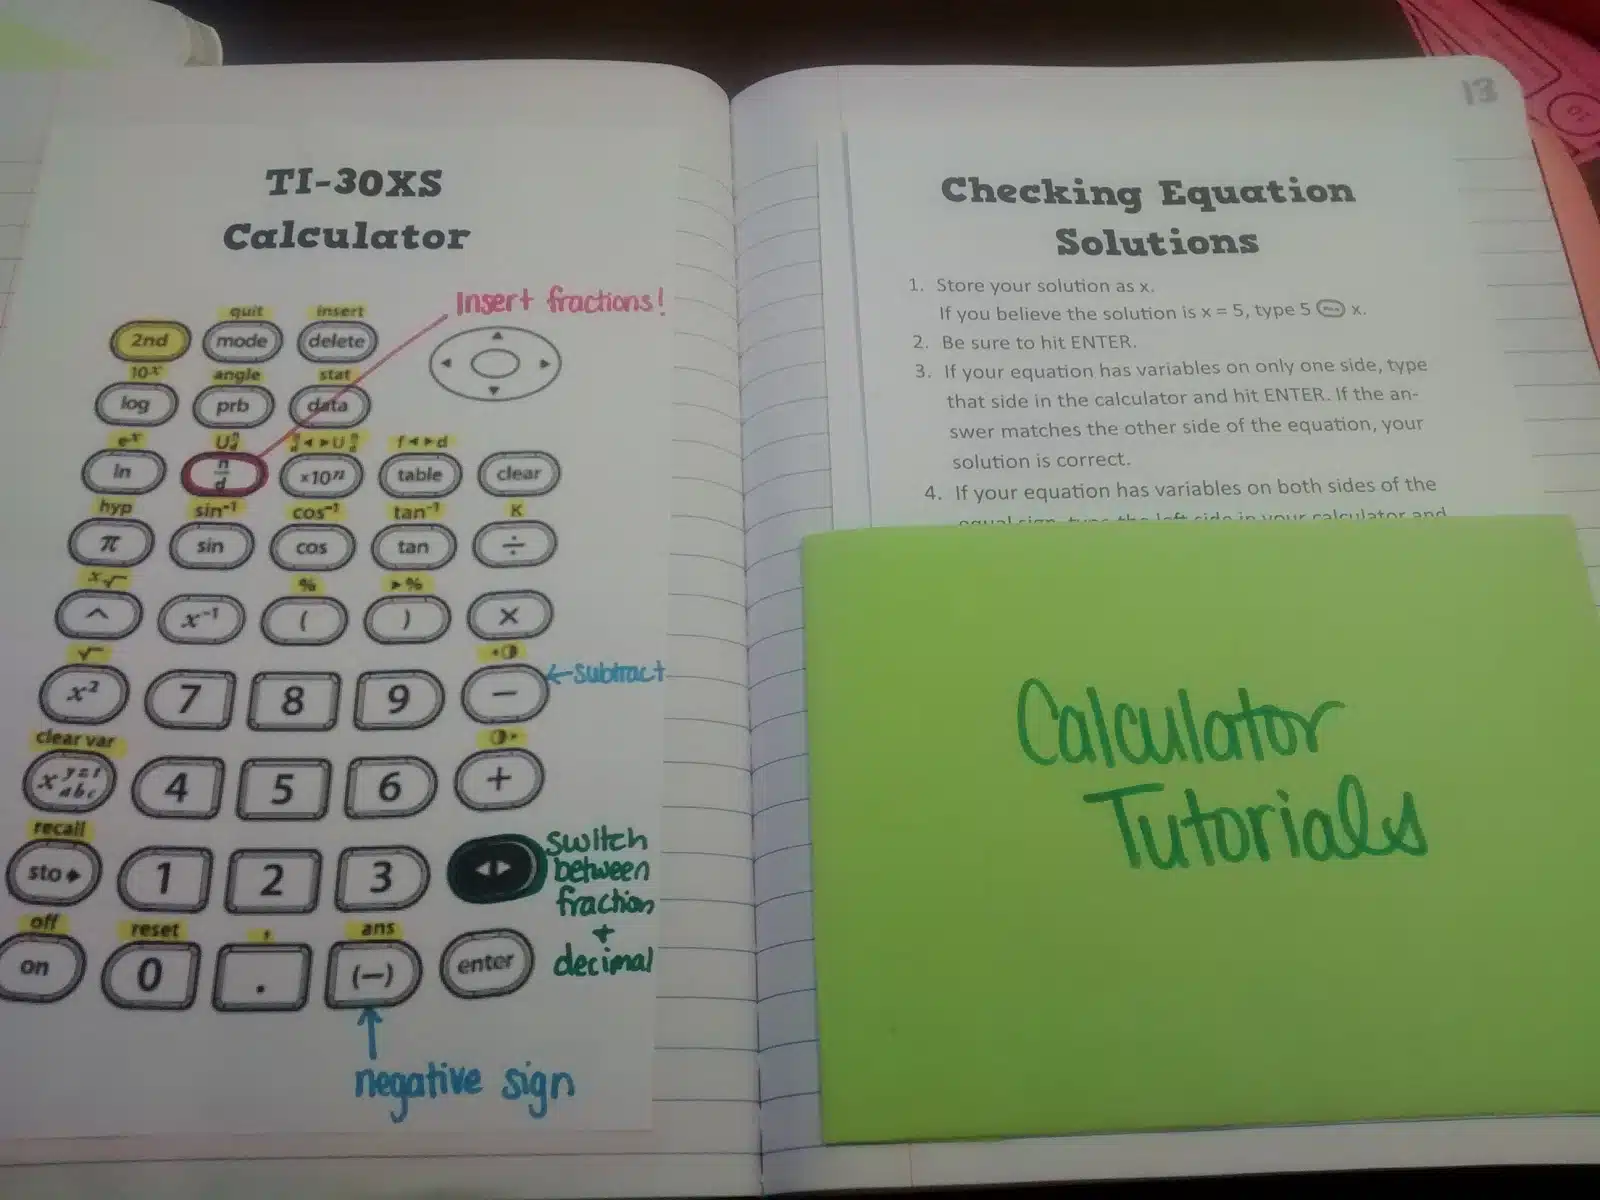 TI-30XS
Calculator
Insert fractions!
quit insert
2nd mode delete
10ˣ angle stat
log prb data
eˣ f◄►d
ln n/d ×10ⁿ table clear
hyp sin⁻¹ cos⁻¹ tan⁻¹ K
π sin cos tan ÷
ˣ√ % ►%
^ x⁻¹ ( ) ×
√
x² 7 8 9 − ←subtract
clear var
x y z t a b c 4 5 6 +
recall
sto▸ 1 2 3 ◄►
switch
between
fraction
+
decimal
off reset , ans
on 0 . (−) enter
negative sign
13
Checking Equation
Solutions
1. Store your solution as x.
If you believe the solution is x = 5, type 5 x.
2. Be sure to hit ENTER.
3. If your equation has variables on only one side, type
that side in the calculator and hit ENTER. If the an-
swer matches the other side of the equation, your
solution is correct.
4. If your equation has variables on both sides of the
equal sign, type the left side in your calculator and
Calculator
Tutorials